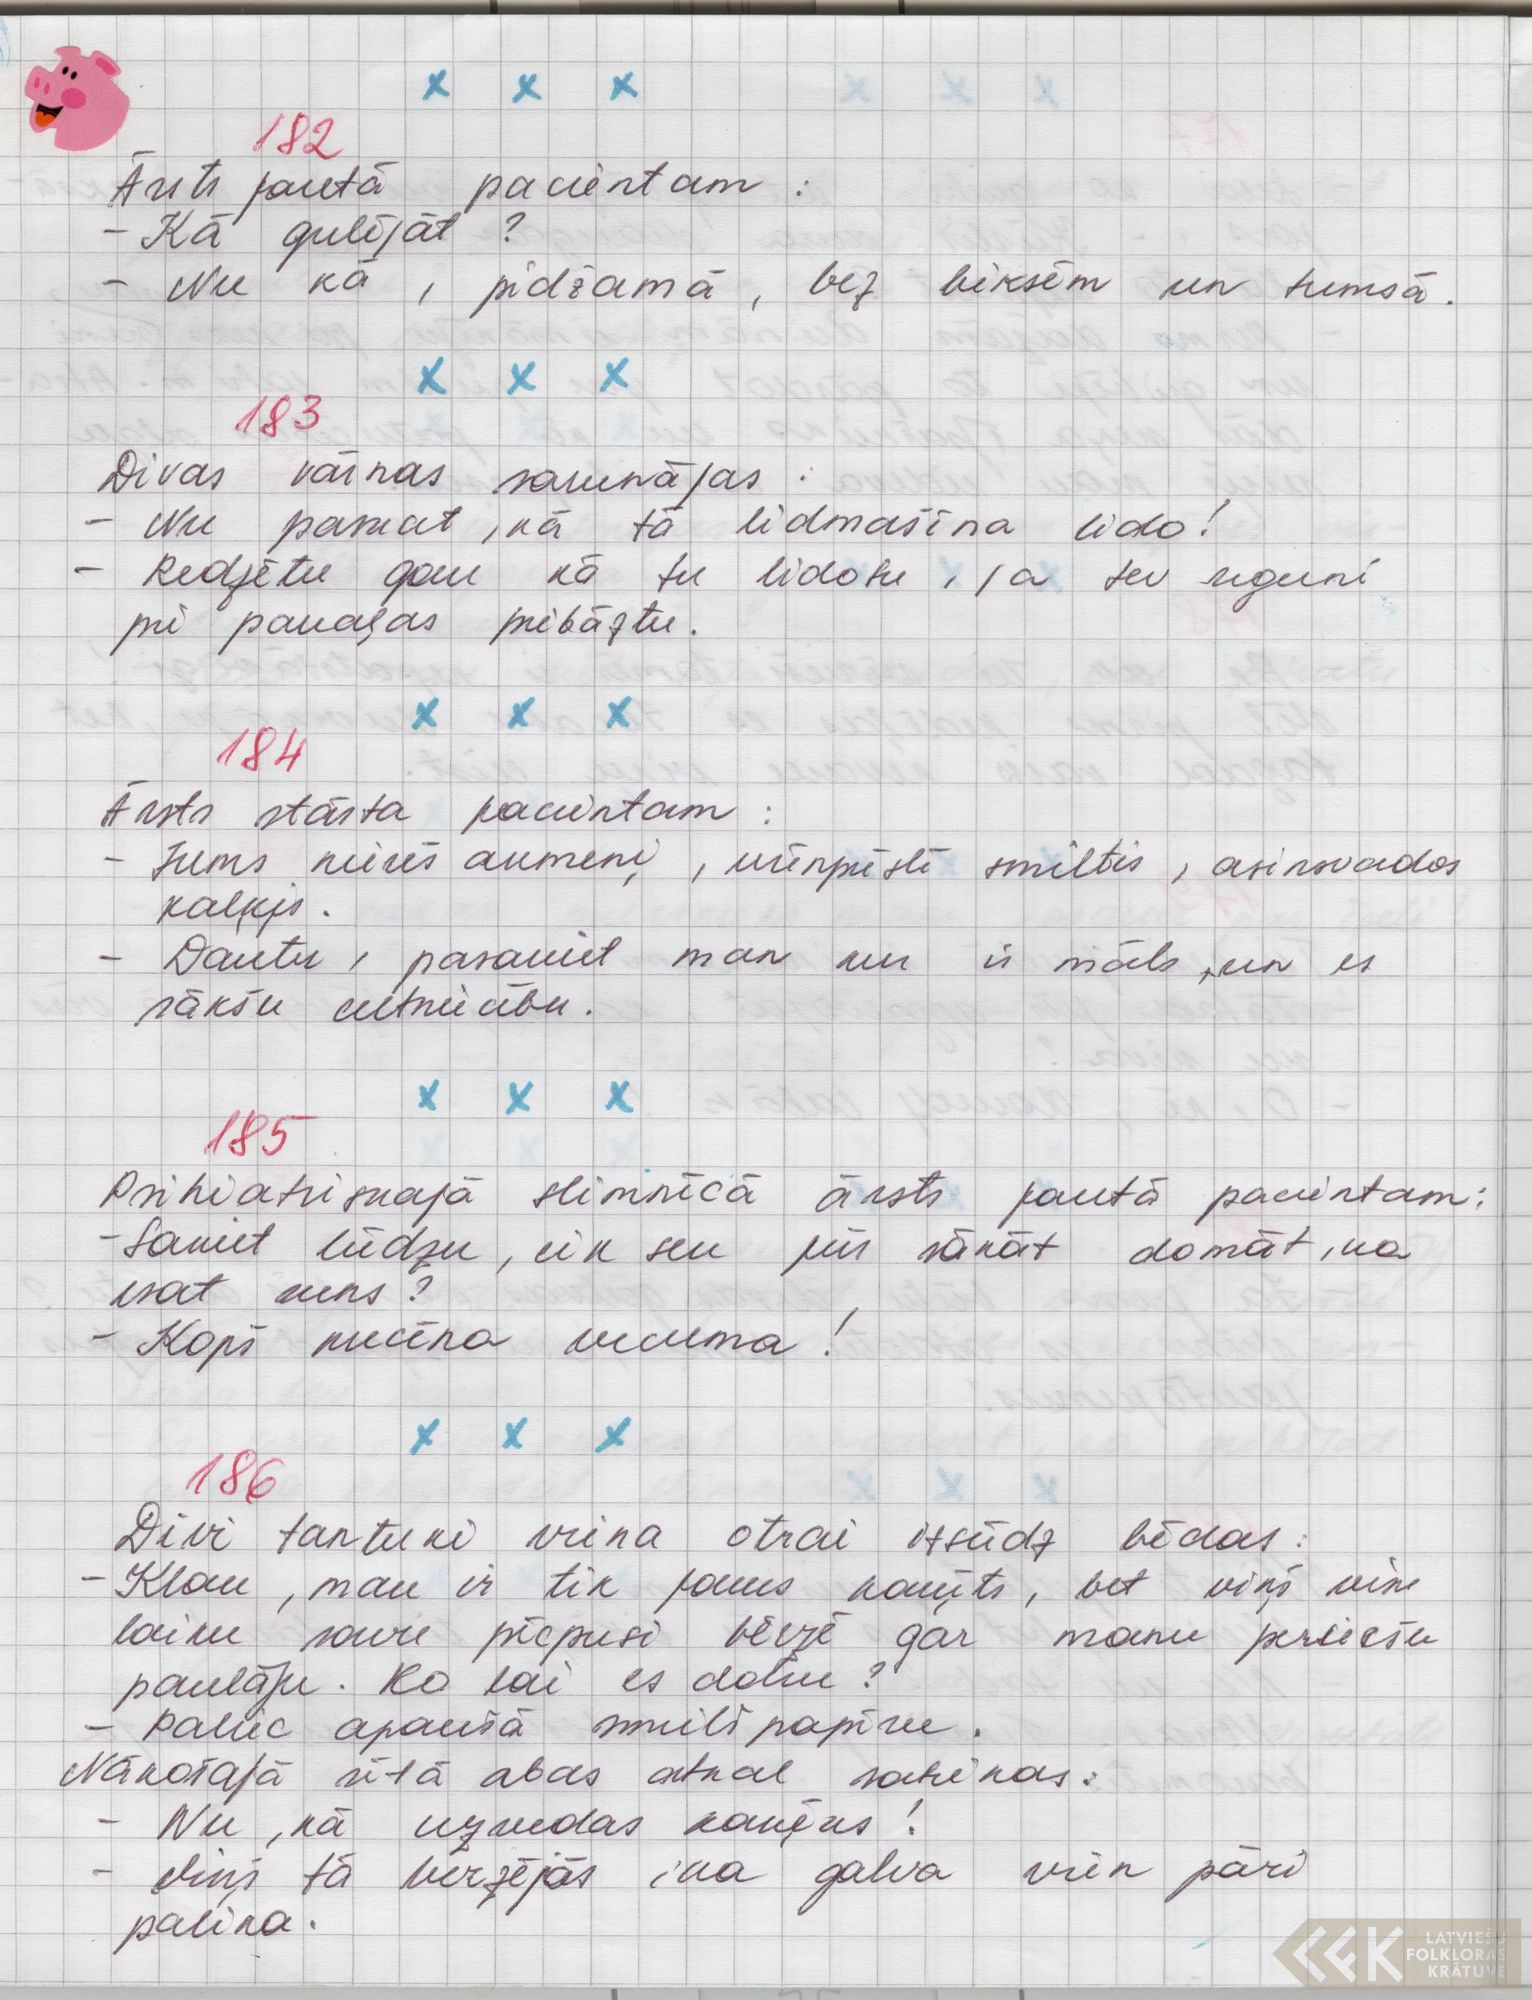 x x x
182
Ārsts jautā pacientam :
- Kā gulējāt ?
- Nu kā , pidžamā , bez biksēm un tumsā .
x x x
183
Divas vārnas sarunājas :
- Nu paskat , kā tā lidmašīna lido !
- Redzētu gan kā tu lidotu , ja tev uguni
pi pakaļas piebāztu .
x x x
184
Ārsts stāsta pacientam :
- Jums nierēs akmeņi , urīnpūslī smiltis , asinsvados
kaļķis .
- Dakter , pasakiet man kur ir māls , un es
sākšu celtniecību .
x x x
185
Psihiatriskajā slimnīcā ārsts jautā pacientam :
- Sakiet lūdzu , cik sen jūs sākāt domāt , ka
esat suns ?
- Kopš kucēna vecuma !
x x x
186
Divi tantuki viena otrai izsūdz bēdas :
- Klau , man ir tik jauks kaķīts , bet viņš visu
laiku savu pēcpusi bērzē gar manu persiešu
paklāju . Ko lai es daru ?
- Paliec apakšā smilšpapīru .
Nākošajā rītā abas atkal satiekas :
- Nu , kā uzvedas kaķēns !
- Viņš tā berzējās , ka galva vien pāri
palika .
LATVIEŠU
FOLKLORAS
KRĀTUVE